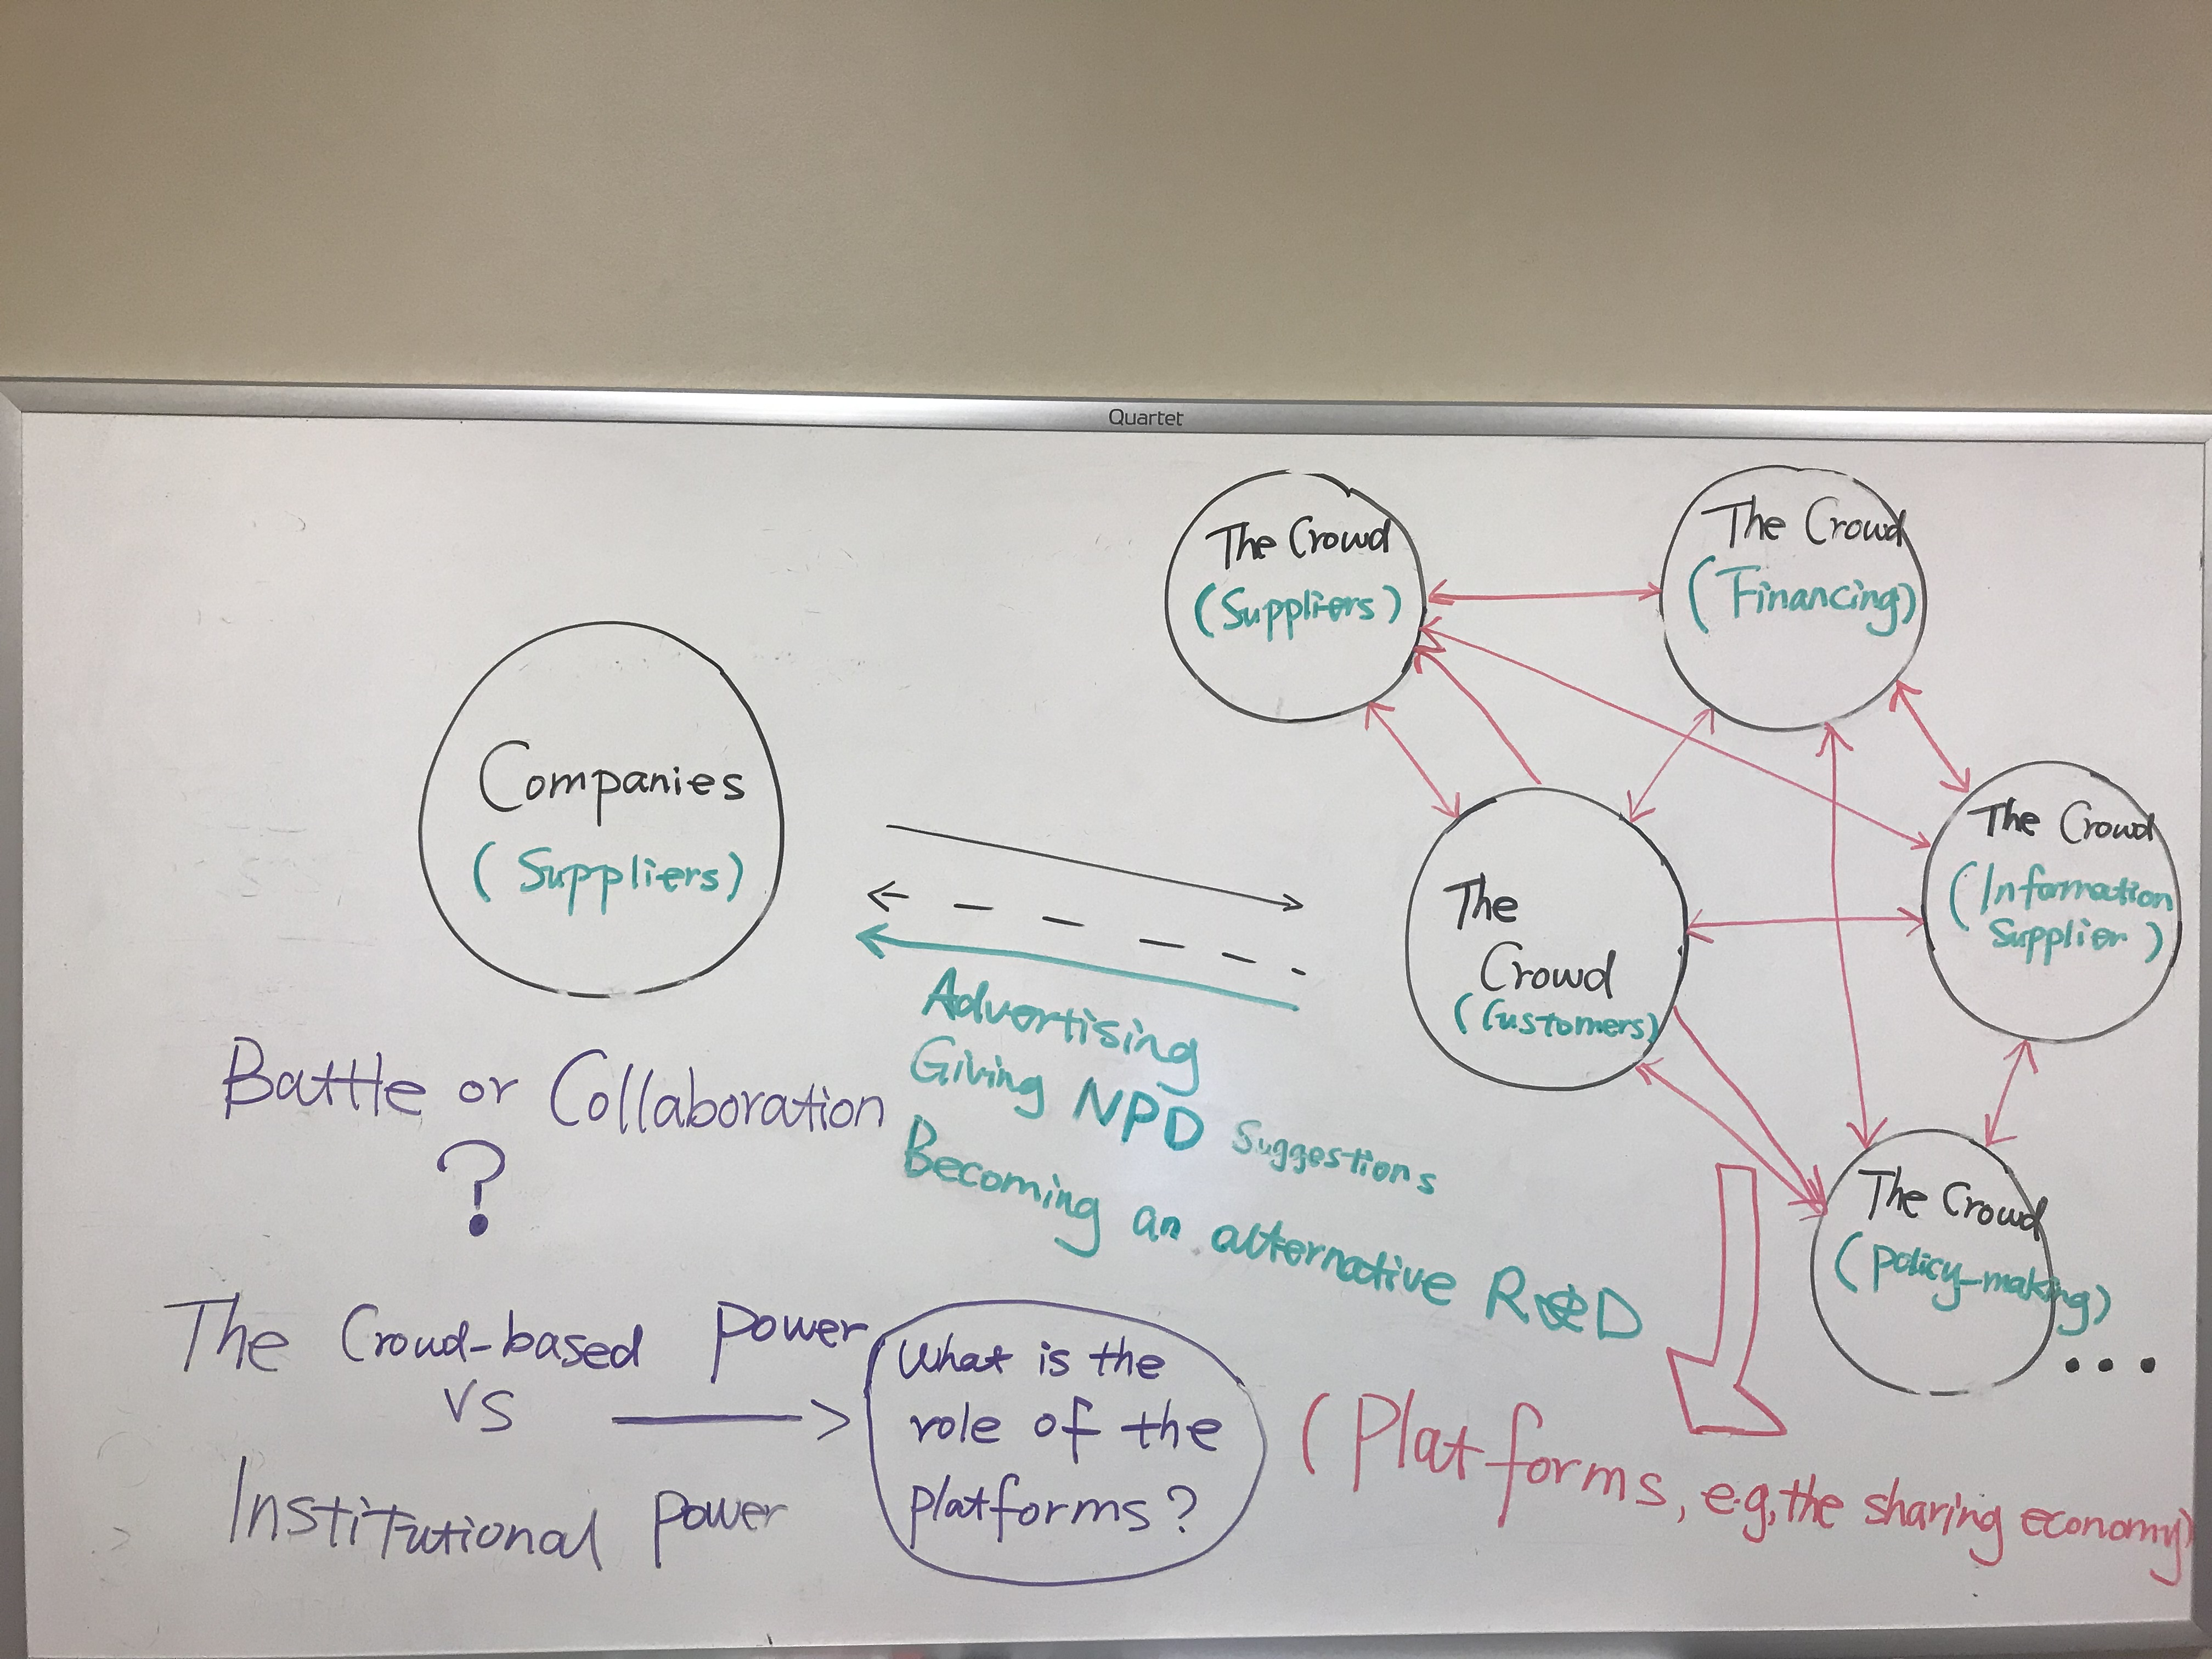 Quartet
The Crowd
(Suppliers)
The Crowd
(Financing)
Companies
(Suppliers)
The
Crowd
(Customers)
The Crowd
(Information
Supplier)
The Crowd
(policy-making)
...
Advertising
Giving NPD Suggestions
Becoming an alternative R&D
Battle or Collaboration
?
The Crowd-based power
VS
Institutional power
What is the
role of the
platforms?
(Platforms, e.g, the sharing economy)